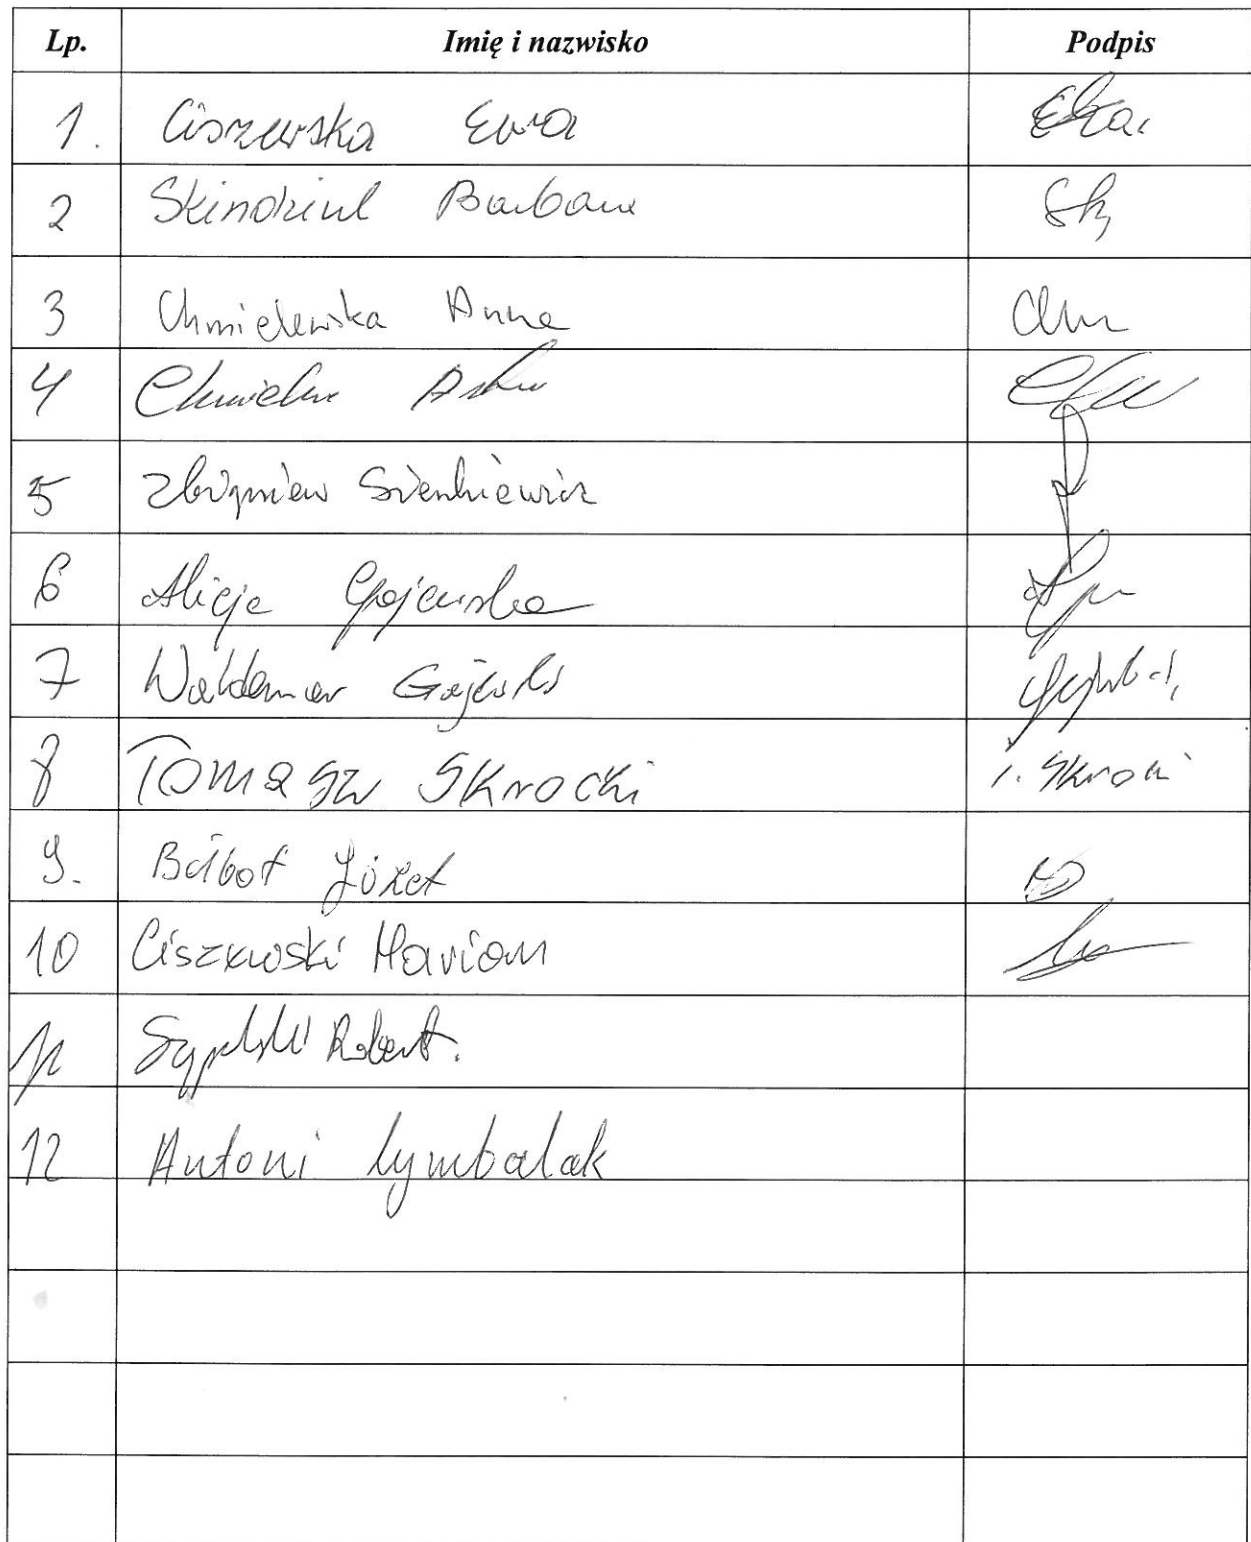 Lp. Imię i nazwisko Podpis
1. Ciszewska Ewa
2 Skindziul Barbara Sk
3 Chmielewska Anna Chm
4
5 Zbigniew Sienkiewicz
6 Alicja Gajewska
7 Waldemar Gajewski
8 Tomasz Skrocki T. Skrocki
9. Józef
10 Ciszewski Marian
11 Robert.
12 Antoni Cymbalak